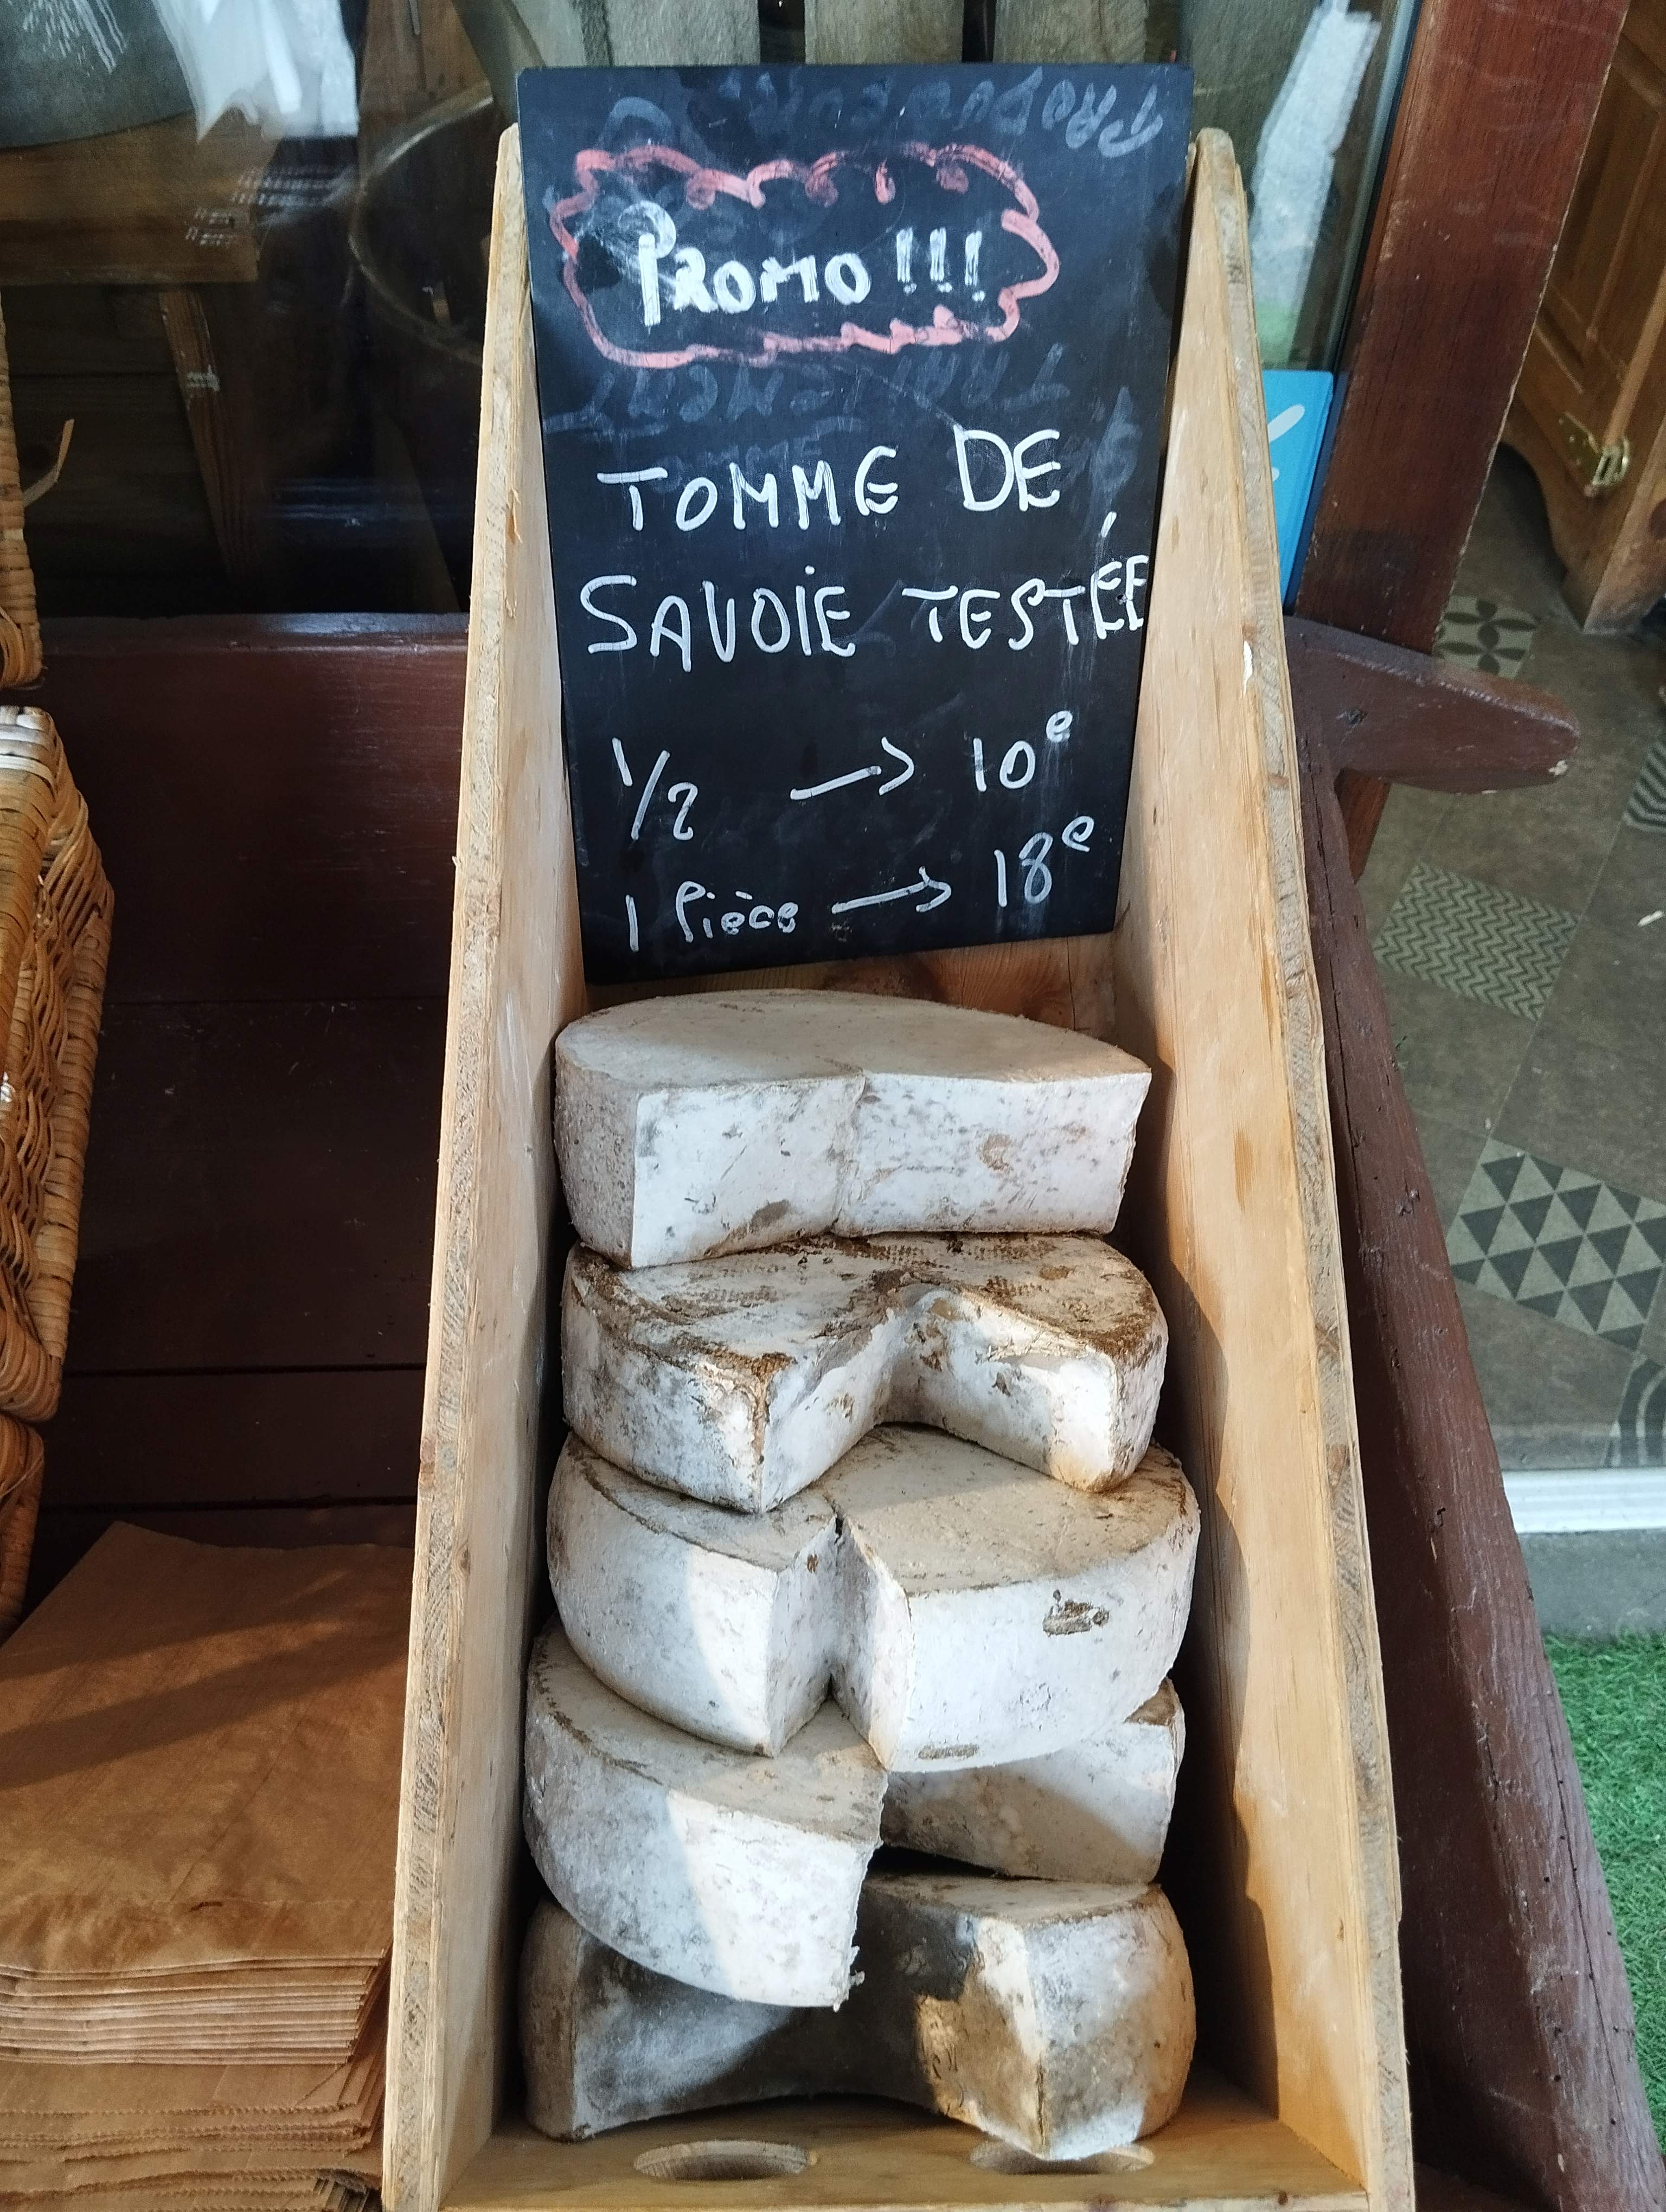 Promo !!!
TOMME DE
SAVOIE TESTÉE
1/2 → 10e
1 Pièce → 18e